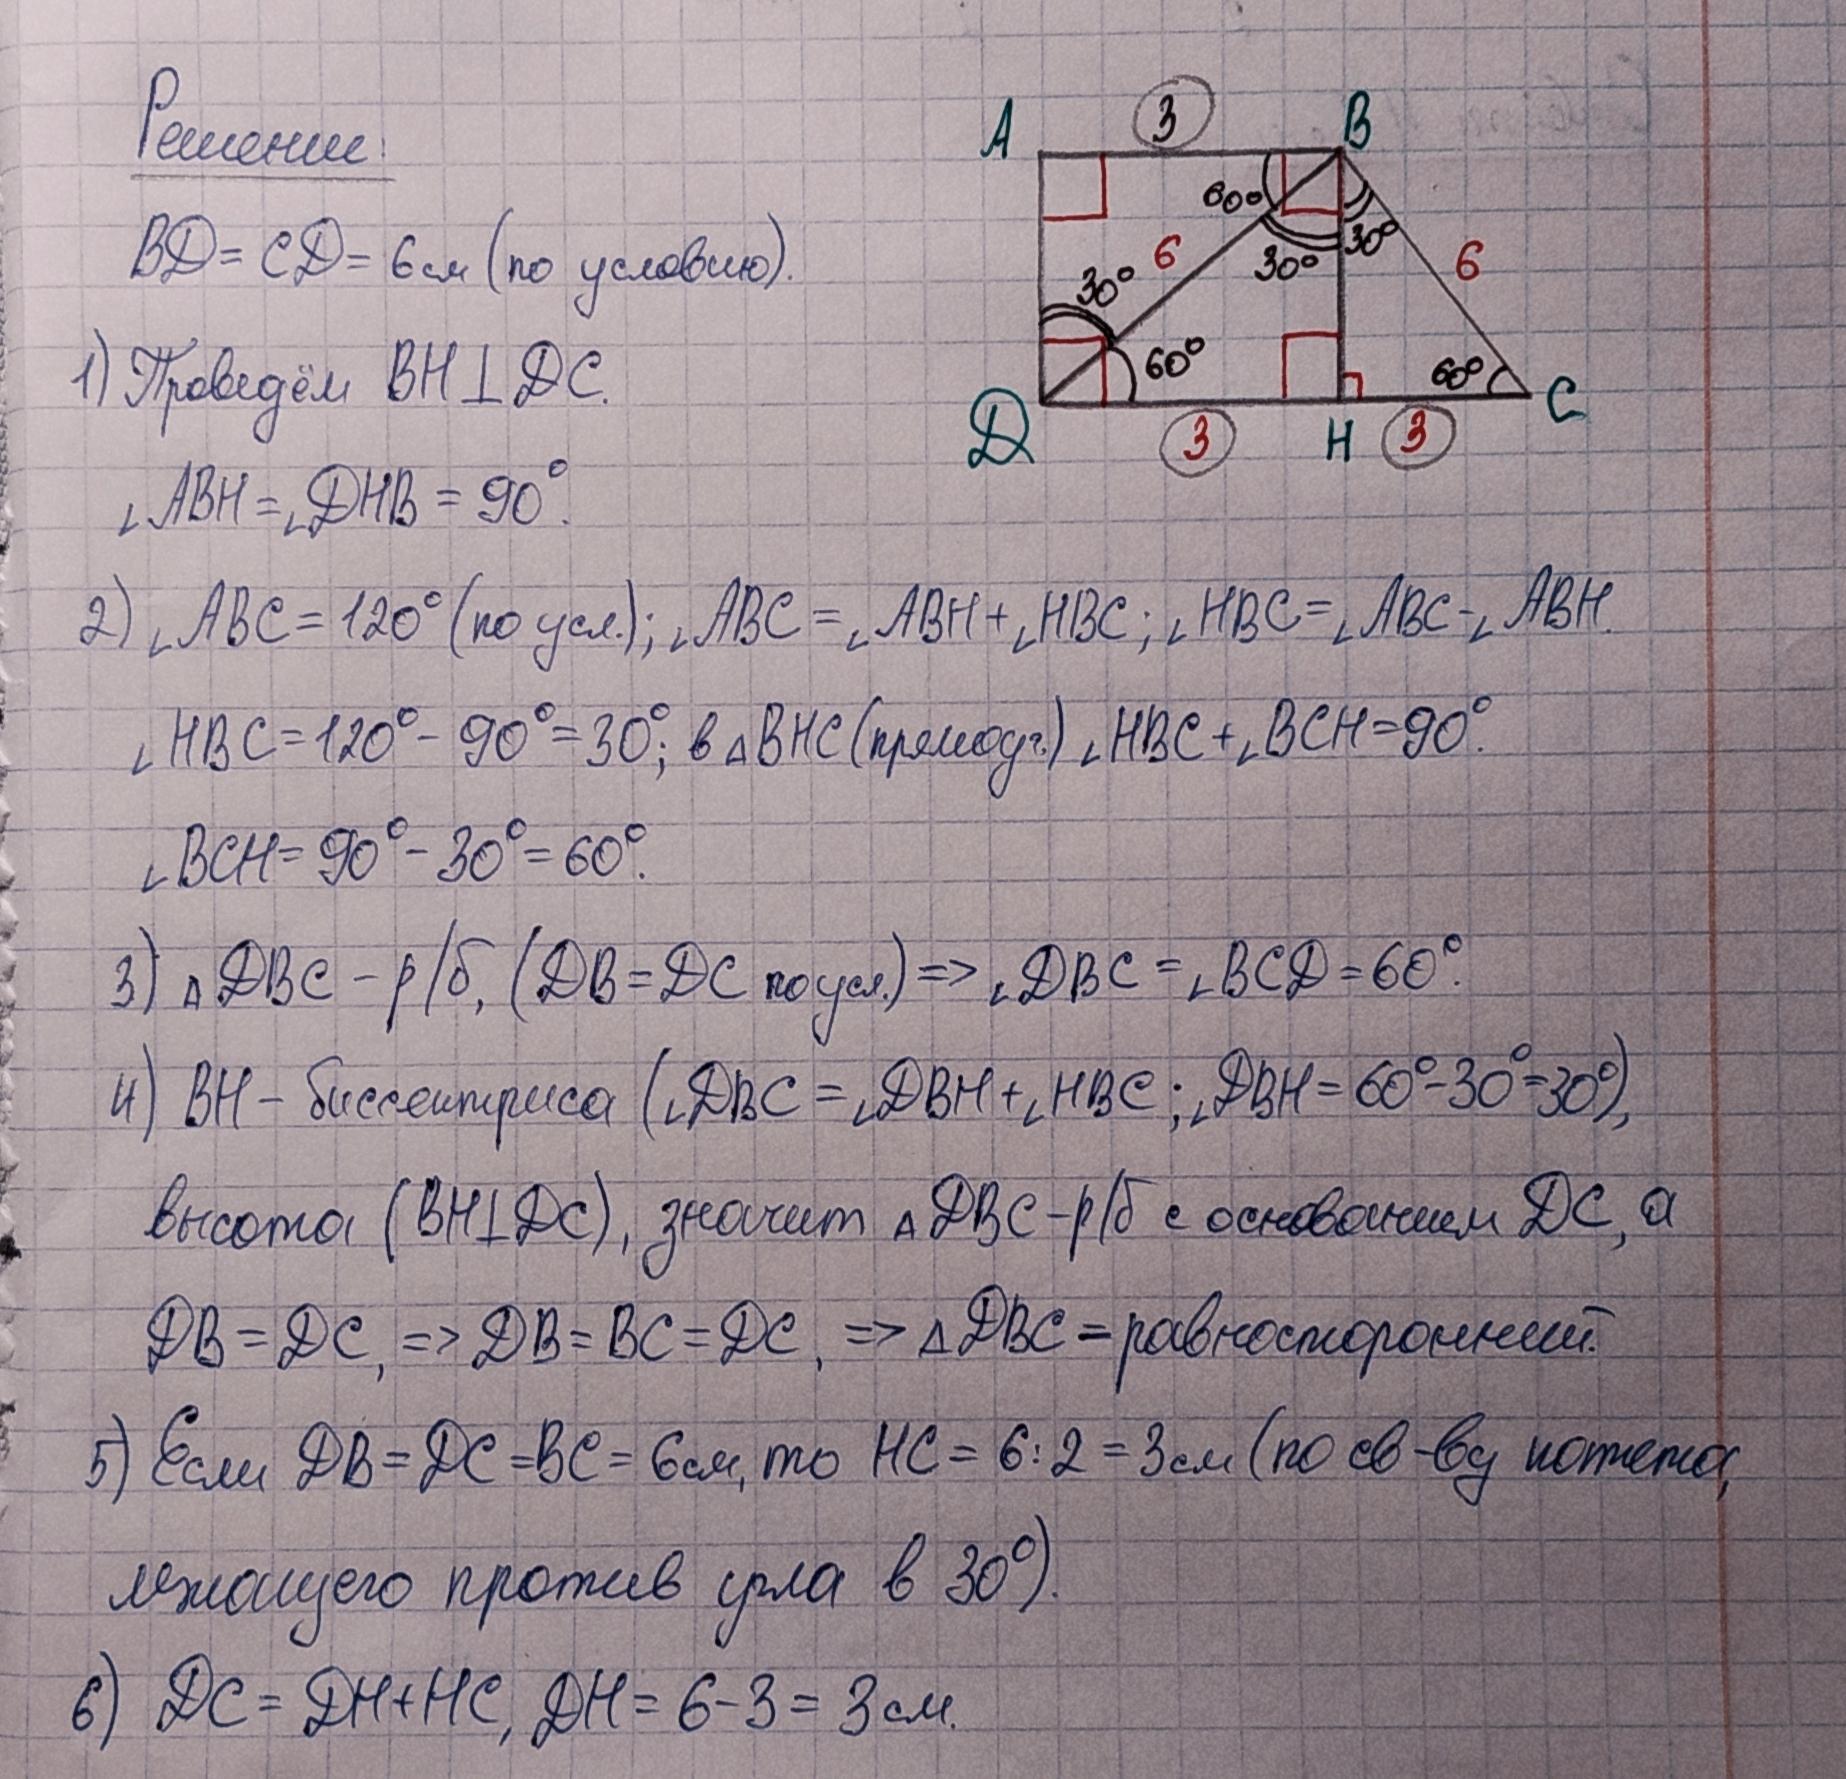 Решение:
BD = CD = 6 см (по условию).
1) Проведём BH ⊥ DC.
∠ABH = ∠DHB = 90°.
2) ∠ABC = 120° (по усл.); ∠ABC = ∠ABH + ∠HBC; ∠HBC = ∠ABC - ∠ABH.
∠HBC = 120° - 90° = 30°; в △BHC (прямоуг.) ∠HBC + ∠BCH = 90°.
∠BCH = 90° - 30° = 60°.
3) △DBC - р/б, (DB = DC по усл.) => ∠DBC = ∠BCD = 60°.
4) BH - биссектриса (∠DBC = ∠DBH + ∠HBC; ∠DBH = 60° - 30° = 30°),
высота (BH ⊥ DC), значит △DBC - р/б с основанием DC, а
DB = DC, => DB = BC = DC, => △DBC = равносторонний.
5) Если DB = DC = BC = 6 см, то HC = 6 : 2 = 3 см (по св-ву катета,
лежащего против угла в 30°).
6) DC = DH + HC, DH = 6 - 3 = 3 см.
A 3 B
60°
30° 6 30° 30° 6
60° 60°
D 3 H 3 C